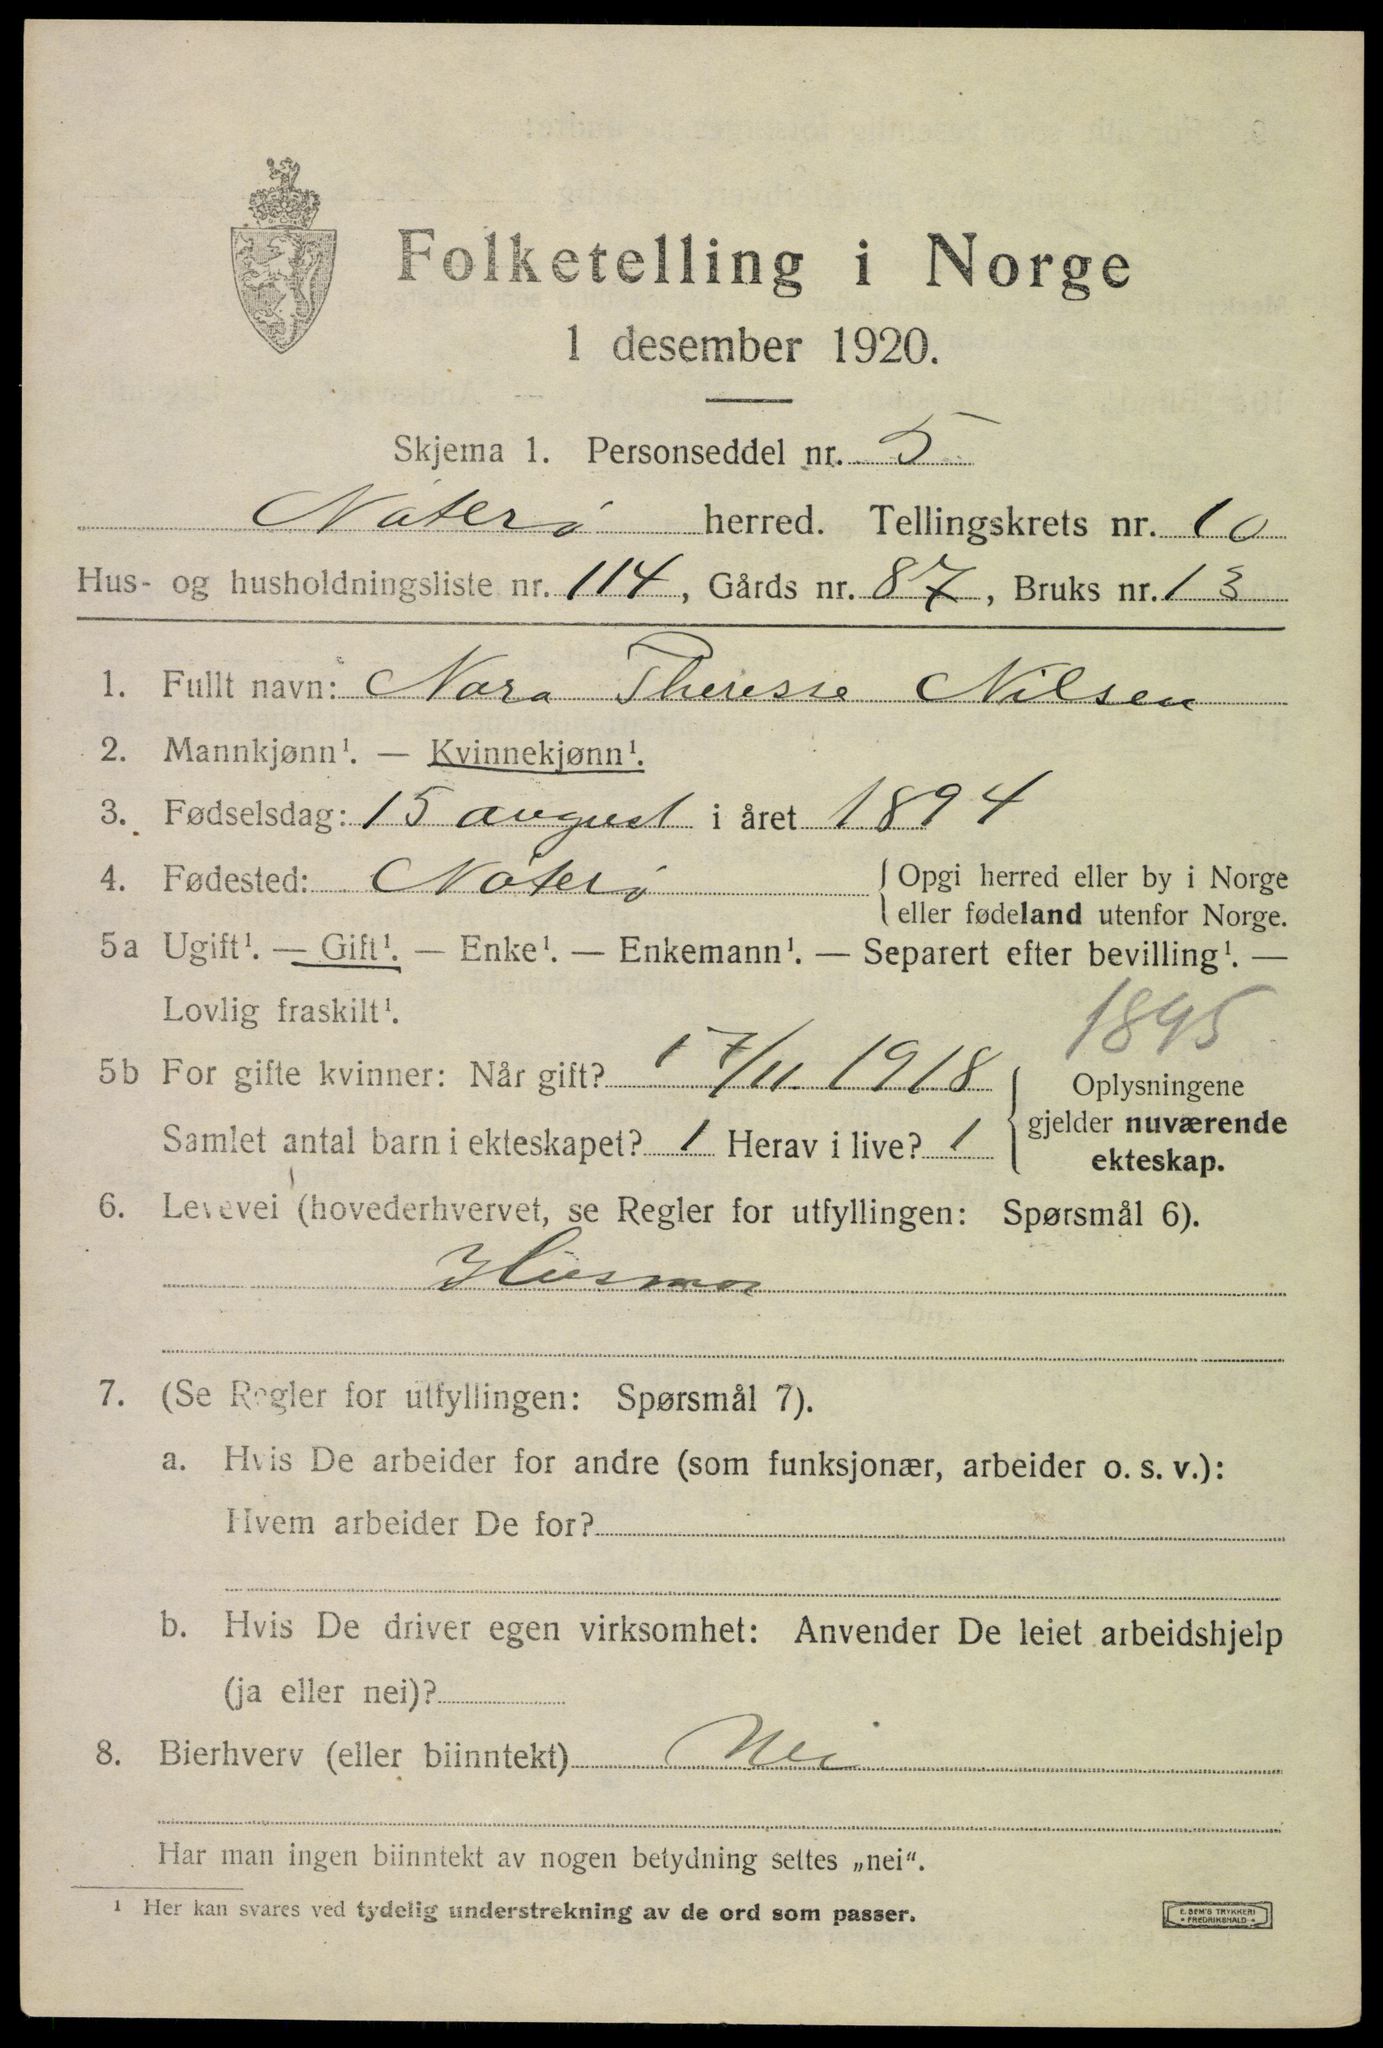 Folketelling i Norge
1 desember 1920.
Skjema 1. Personseddel nr. 5
Nøterø herred. Tellingskrets nr. 10
Hus- og husholdningsliste nr. 114, Gårds nr. 87, Bruks nr. 13
1. Fullt navn: Nora Theresie Nilsen
2. Mannkjønn¹. — Kvinnekjønn¹.
3. Fødselsdag: 15 august i året 1894
4. Fødested: Nøterø { Opgi herred eller by i Norge
eller fødeland utenfor Norge.
5a Ugift¹. — Gift¹. — Enke¹. — Enkemann¹. — Separert efter bevilling¹. —
Lovlig fraskilt¹.
1895
5b For gifte kvinner: Når gift? 17/11. 1918
Samlet antal barn i ekteskapet? 1 Herav i live? 1
{ Oplysningene
gjelder nuværende
ekteskap.
6. Levevei (hovederhvervet, se Regler for utfyllingen: Spørsmål 6).
Husmor
7. (Se Regler for utfyllingen: Spørsmål 7).
a. Hvis De arbeider for andre (som funksjonær, arbeider o. s. v.):
Hvem arbeider De for?
b. Hvis De driver egen virksomhet: Anvender De leiet arbeidshjelp
(ja eller nei)?
8. Bierhverv (eller biinntekt) Nei
Har man ingen biinntekt av nogen betydning settes „nei“.
¹ Her kan svares ved tydelig understrekning av de ord som passer.
E. SEM'S TRYKKERI
FREDRIKSHALD